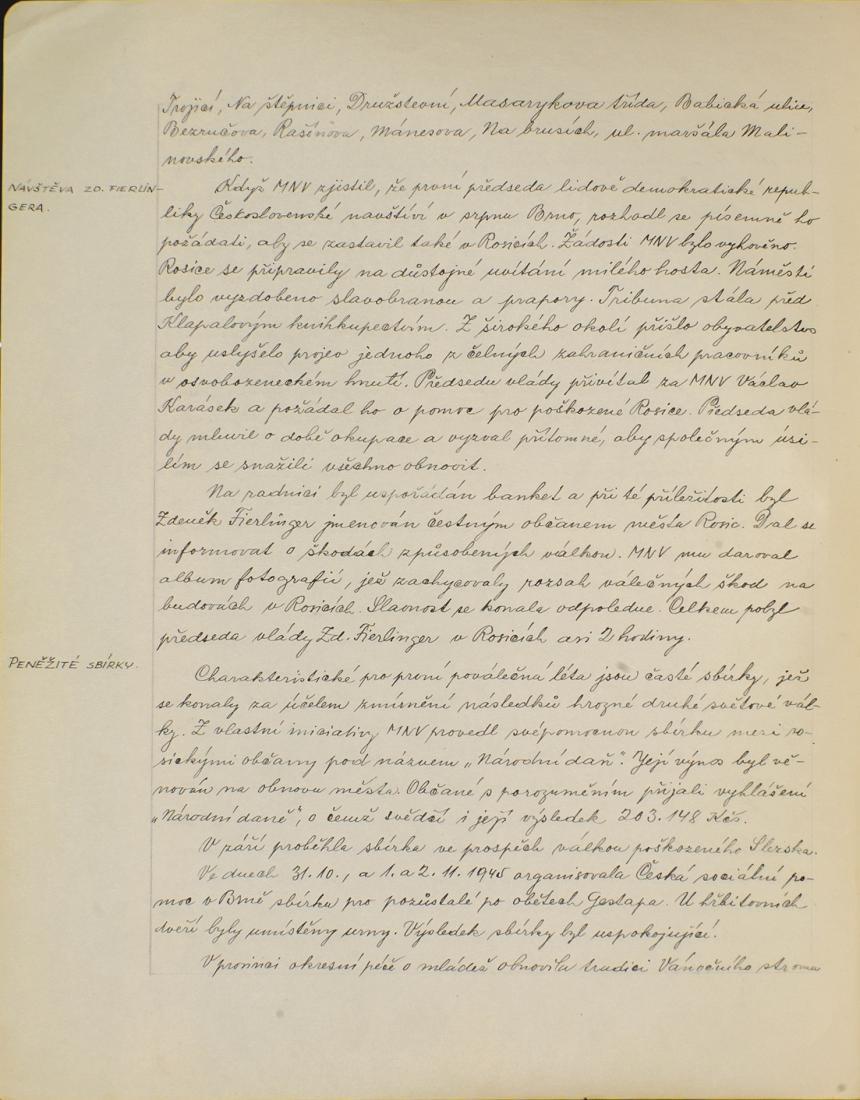 Trojicí, Na štěpnici, Družstevní, Masarykova třída, Babická ulice,
Bezručova, Rašínova, Mánesova, Na brusích, ul. maršála Mali-
novského.
NÁVŠTĚVA ZD. FIERLIN-
GERA.
Když MNV zjistil, že první předseda lidově demokratické repub-
liky Československé navštíví v srpnu Brno, rozhodl se písemně ho
požádati, aby se zastavil také v Rosicích. Žádosti MNV bylo vyhověno.
Rosice se připravily na důstojné uvítání milého hosta. Náměstí
bylo vyzdobeno slavobranou a prapory. Tribuna stála před
Klapalovým knihkupectvím. Z širokého okolí přišlo obyvatelstvo
aby uslyšelo projev jednoho z čelných zahraničních pracovníků
v osvobozeneckém hnutí. Předsedu vlády přivítal za MNV Václav
Karásek a požádal ho o pomoc pro poškozené Rosice. Předseda vlá-
dy mluvil o době okupace a vyzval přítomné, aby společným úsi-
lím se snažili všechno obnovit.
Na radnici byl uspořádán banket a při té příležitosti byl
Zdeněk Fierlinger jmenován čestným občanem města Rosic. Dal se
informovat o škodách způsobených válkou. MNV mu daroval
album fotografií, jež zachycovaly rozsah válečných škod na
budovách v Rosicích. Slavnost se konala odpoledne. Celkem pobyl
předseda vlády Zd. Fierlinger v Rosicích asi 2 hodiny.
PENĚŽITÉ SBÍRKY.
Charakteristické pro první poválečná léta jsou časté sbírky, jež
se konaly za účelem zmírnění následků hrozné druhé světové vál-
ky. Z vlastní iniciativy MNV provedl svépomocnou sbírku mezi ro-
sickými občany pod názvem „Národní daň". Její výnos byl vě-
nován na obnovu města. Občané s porozuměním přijali vyhlášení
„Národní daně", o čemž svědčí i její výsledek 203.148 Kčs.
V září proběhla sbírka ve prospěch válkou poškozeného Slezska.
Ve dnech 31.10., a 1. a 2. 11. 1945 organisovala Česká sociální po-
moc v Brně sbírku pro pozůstalé po obětech Gestapa. U hřbitovních
dveří byly umístěny urny. Výsledek sbírky byl uspokojující.
V prosinci okresní péče o mládež obnovila tradici Vánočního stromu